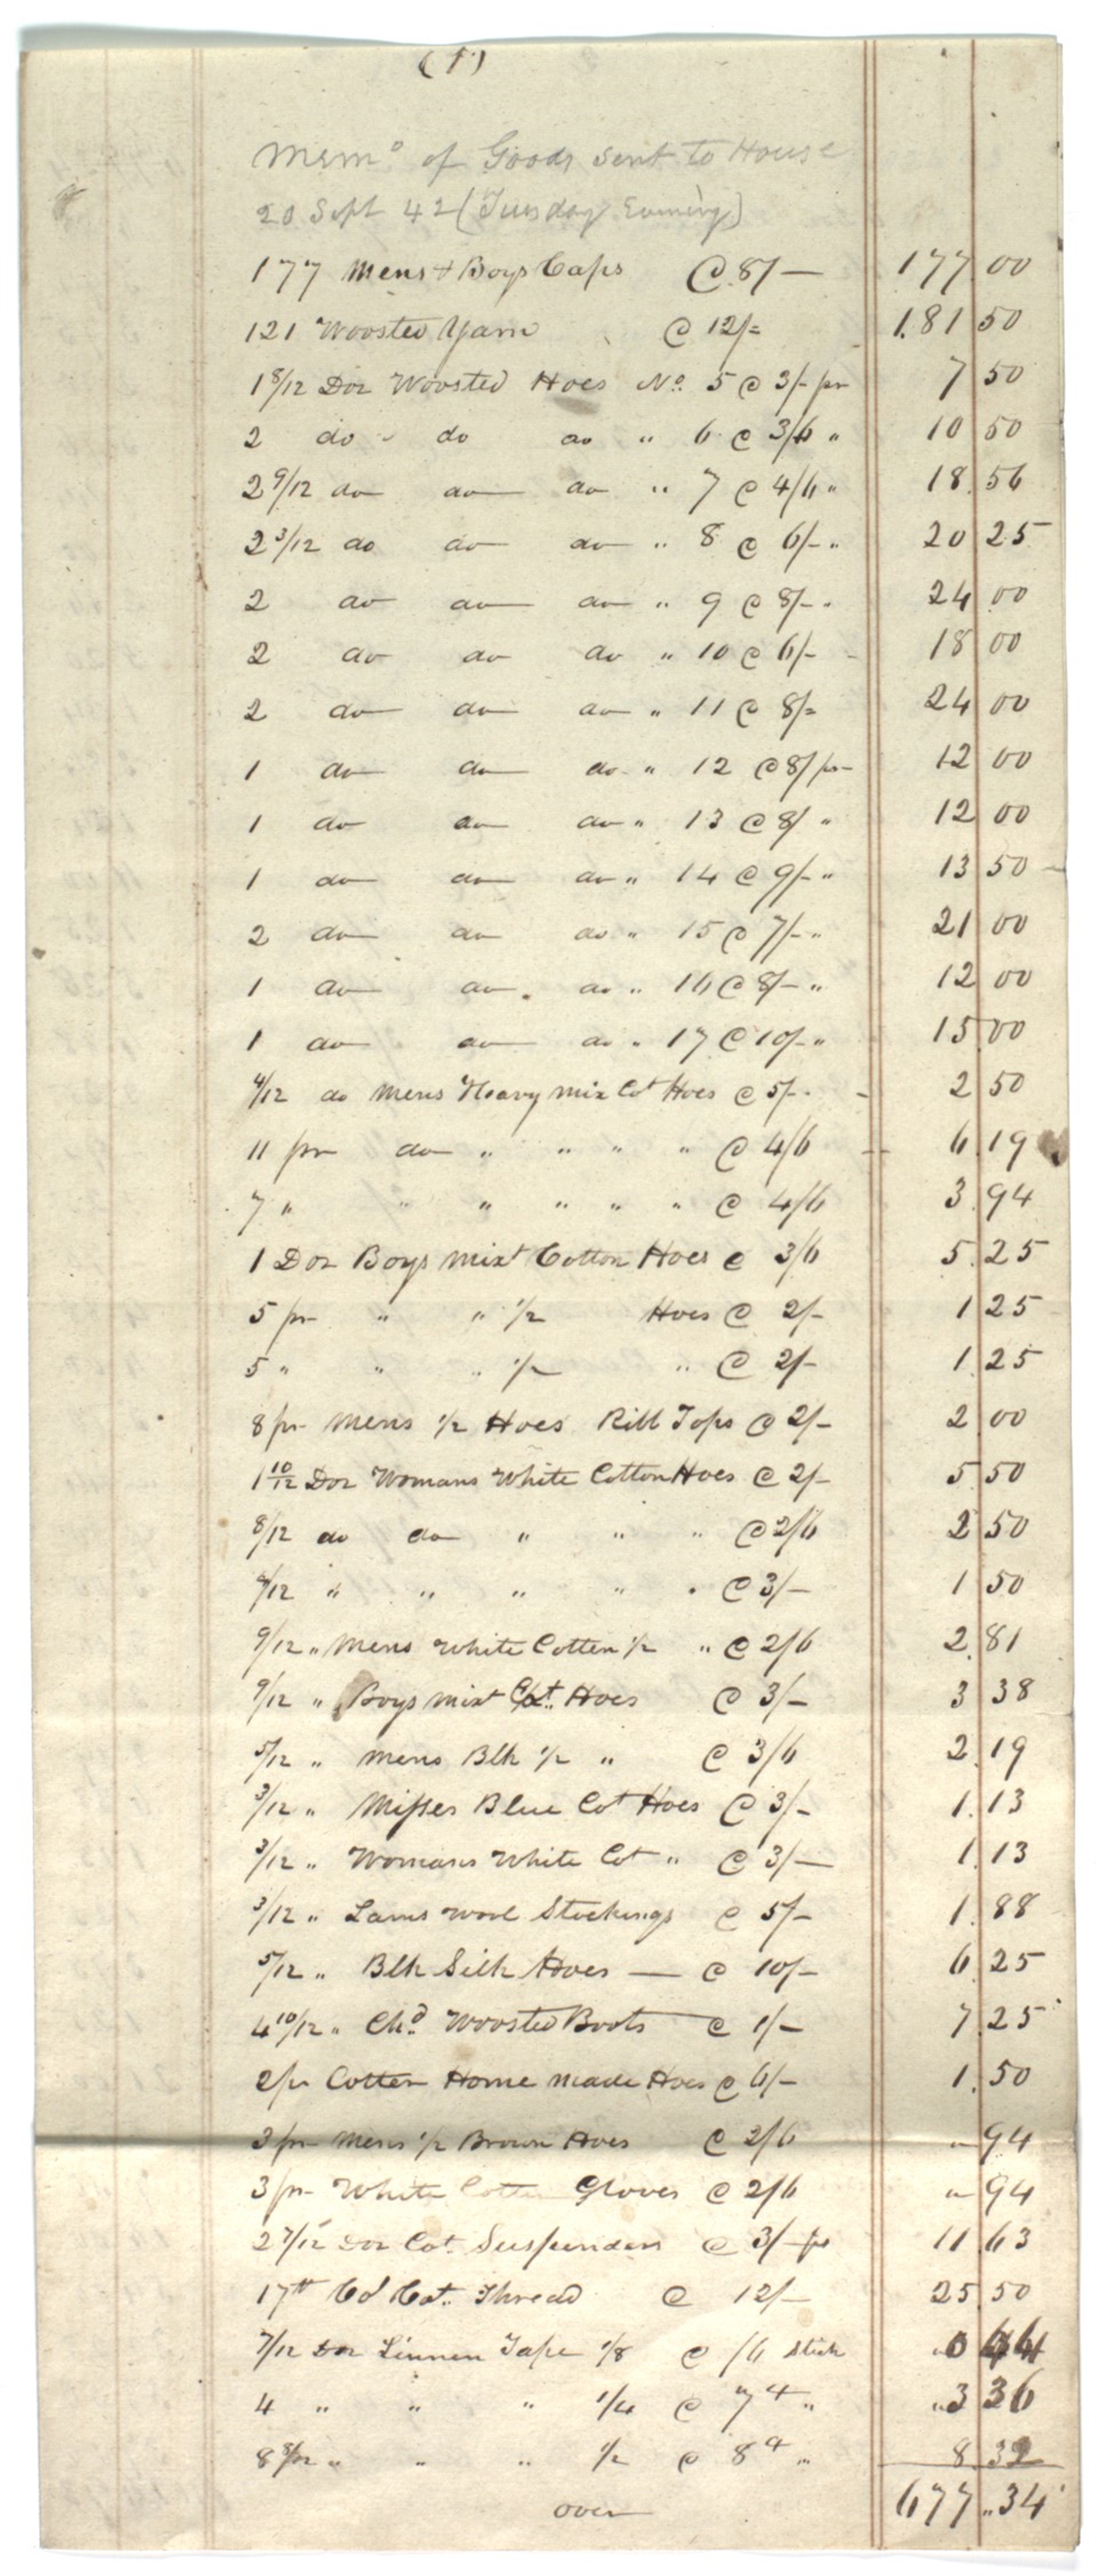 (1)
Memo of Goods sent to House
20 Sept 42 (Tuesday Evening)
177 Mens & Boys Caps @ 8/— 177 00
121 Woosted Yarn @ 12/= 181 50
1 8/12 Doz Woosted Hoes No. 5 @ 3/- pr 7 50
2 do do do " 6 @ 3/6 " 10 50
2 9/12 do do do " 7 @ 4/6 " 18.56
2 3/12 do do do " 8 @ 6/- " 20 25
2 do do do " 9 @ 8/- " 24 00
2 do do do " 10 @ 6/- 18 00
2 do do do " 11 @ 8/= 24 00
1 do do do " 12 @ 8/ pr 12 00
1 do do do " 13 @ 8/ " 12 00
1 do do do " 14 @ 9/- " 13 50
2 do do do " 15 @ 7/- " 21 00
1 do do do " 16 @ 8/- " 12 00
1 do do do " 17 @ 10/- " 15 00
4/12 do Mens Heavy Mix Cot Hoes @ 5/- 2 50
11 pr do " " " " @ 4/6 6.19
7 " " " " " " @ 4/6 3.94
1 Doz Boys Mixt Cotton Hoes @ 3/6 5.25
5 pr " " 1/2 Hoes @ 2/- 1 25
5 " " " 1/2 " @ 2/- 1.25
8 pr Mens 1/2 Hoes Ribb Tops @ 2/- 2 00
1 10/12 Doz Womans White Cotton Hoes @ 2/- 5.50
8/12 do do " " " @ 2/6 2 50
4/12 " " " " " @ 3/- 1 50
9/12 " Mens White Cotten 1/2 " @ 2/6 2.81
9/12 " Boys Mixt Cot. Hoes @ 3/- 3 38
5/12 " Mens Blk 1/2 " @ 3/6 2.19
3/12 " Misses Blue Cot Hoes @ 3/- 1.13
3/12 " Womans White Cot " @ 3/— 1.13
3/12 " Lams Wool Stockings @ 5/- 1.88
5/12 " Blk Silk Hoes — @ 10/- 6.25
4 10/12 " Chd. Woosted Boots @ 1/- 7.25
2 pr Cotten Home made Hoes @ 6/- 1.50
3 pr Mens 1/2 Brown Hoes @ 2/6 " 94
3 pr White Cotten Gloves @ 2/6 " 94
2 7/12 Doz Cot. Suspenders @ 3/- pr 11 63
17 tt Cd Cot. Thread @ 12/- 25.50
7/12 Doz Linnen Tape 1/8 @ /6 Stick 0 44
4 " " " 1/4 @ 7d " 3 36
8 8/12 " " " 1/2 @ 8d " 8.32
over 677.34